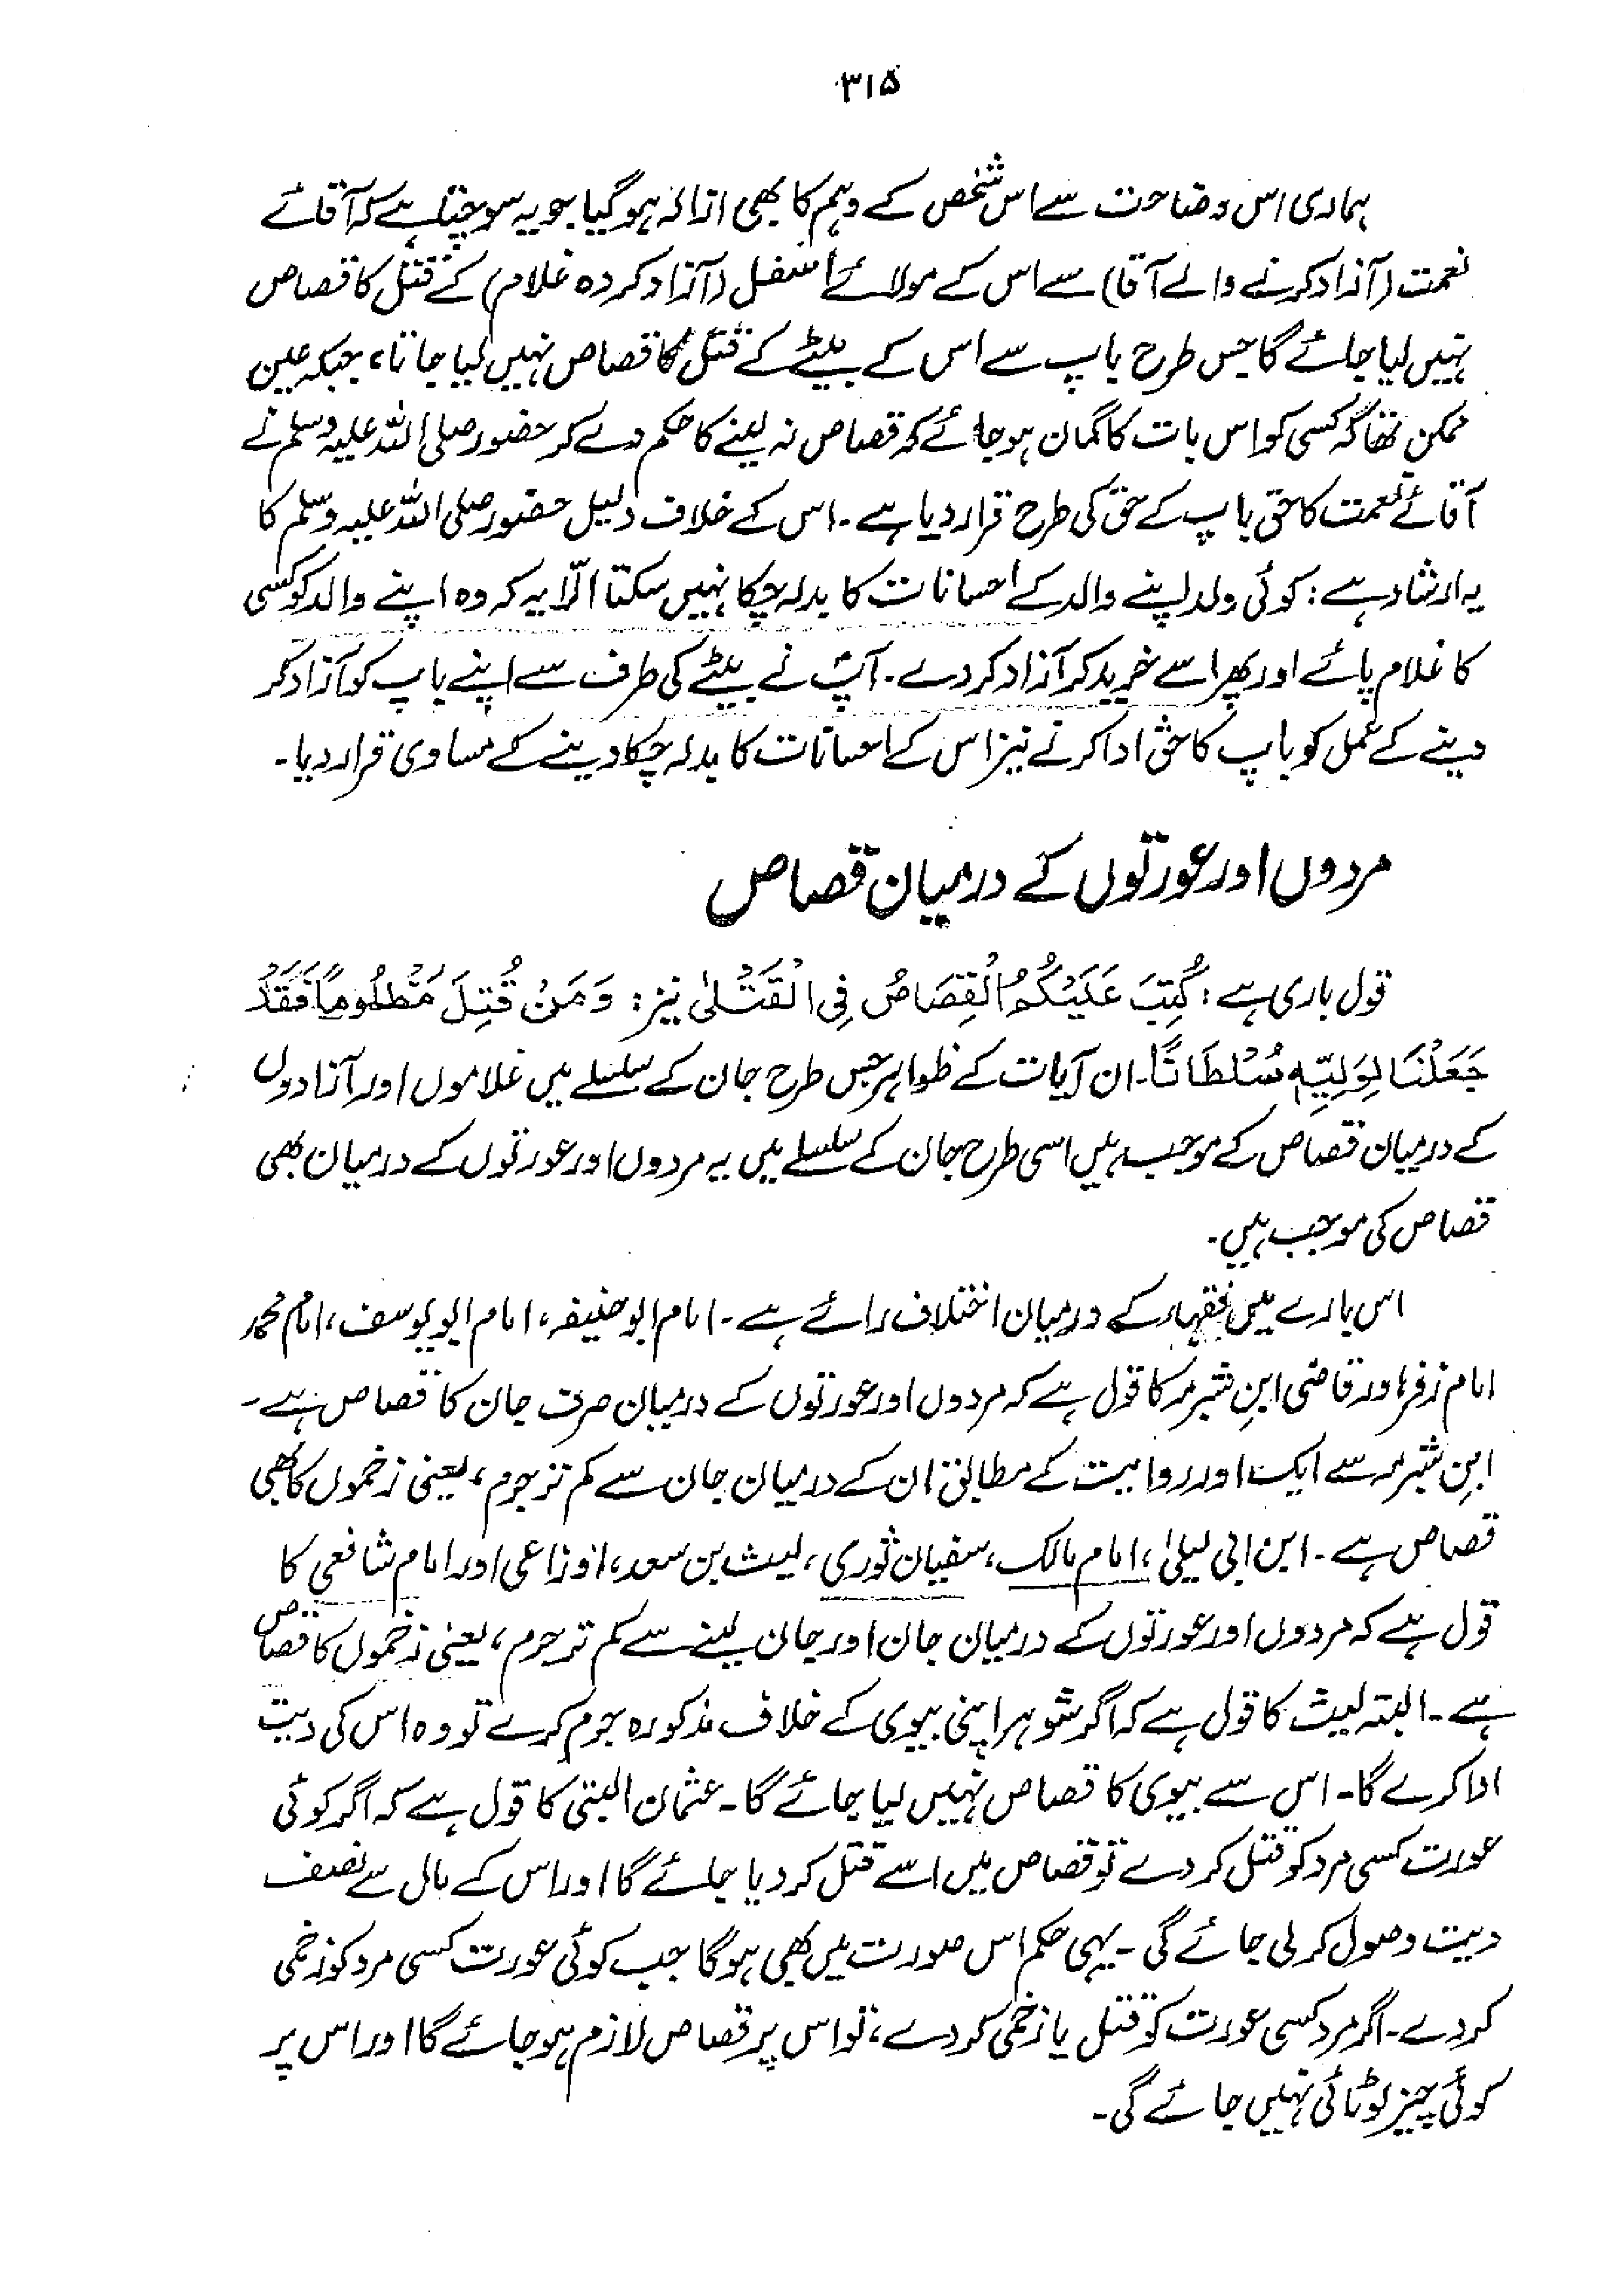 ۳۱۵
ہماری اس وضاحت سے اس شخص کے وہم کا بھی ازالہ ہوگیا جو یہ سوچتا ہے کہ آقائے
نعمت (آزاد کرنے والے آقا) سے اس کے مولائے اسفل (آزاد کردہ غلام) کے قتل کا قصاص
نہیں لیا جائے گا جس طرح باپ سے اس کے بیٹے کے قتل کا قصاص نہیں لیا جاتا، جبکہ عین
ممکن تھا کہ کسی کو اس بات کا گمان ہو جائے کہ قصاص نہ لینے کا حکم دے کر حضور صلی اللہ علیہ وسلم نے
آقائے نعمت کا حق باپ کے حق کی طرح قرار دیا ہے۔ اس کے خلاف دلیل حضور صلی اللہ علیہ وسلم کا
یہ ارشاد ہے: کوئی ولد اپنے والد کے احسانات کا بدلہ چکا نہیں سکتا الّا یہ کہ وہ اپنے والد کو کسی
کا غلام پائے اور پھر اسے خرید کر آزاد کر دے۔ آپؐ نے بیٹے کی طرف سے اپنے باپ کو آزاد کر
دینے کے عمل کو باپ کا حق ادا کرنے نیز اس کے احسانات کا بدلہ چکا دینے کے مساوی قرار دیا۔
مردوں اور عورتوں کے درمیان قصاص
قول باری ہے: كُتِبَ عَلَيْكُمُ الْقِصَاصُ فِي الْقَتْلٰى نیز: وَمَنْ قُتِلَ مَظْلُومًا فَقَدْ
جَعَلْنَا لِوَلِيِّهٖ سُلْطَانًا۔ ان آیات کے ظواہر جس طرح جان کے سلسلے میں غلاموں اور آزادوں
کے درمیان قصاص کے موجب ہیں اسی طرح جان کے سلسلے میں یہ مردوں اور عورتوں کے درمیان بھی
قصاص کی موجب ہیں۔
اس بارے میں فقہاء کے درمیان اختلاف رائے ہے۔ امام ابوحنیفہ، امام ابویوسف، امام محمد
امام زفر اور قاضی ابنِ شبرمہ کا قول ہے کہ مردوں اور عورتوں کے درمیان صرف جان کا قصاص ہے۔
ابنِ شبرمہ سے ایک اور روایت کے مطابق ان کے درمیان جان سے کم تر جرم، یعنی زخموں کا بھی
قصاص ہے۔ ابن ابی لیلیٰ، امام مالک، سفیان ثوری، لیث بن سعد، اوزاعی اور امام شافعی کا
قول ہے کہ مردوں اور عورتوں کے درمیان جان اور جان لینے سے کم تر جرم، یعنی زخموں کا قصاص
ہے۔ البتہ لیث کا قول ہے کہ اگر شوہر اپنی بیوی کے خلاف مذکورہ جرم کرے تو وہ اس کی دیت
ادا کرے گا۔ اس سے بیوی کا قصاص نہیں لیا جائے گا۔ عثمان البتی کا قول ہے کہ اگر کوئی
عورت کسی مرد کو قتل کر دے تو قصاص میں اسے قتل کر دیا جائے گا اور اس کے مال سے نصف
دیت وصول کر لی جائے گی۔ یہی حکم اس صورت میں بھی ہوگا جب کوئی عورت کسی مرد کو زخمی
کر دے۔ اگر مرد کسی عورت کو قتل یا زخمی کر دے، تو اس پر قصاص لازم ہو جائے گا اور اس پر
کوئی چیز لوٹائی نہیں جائے گی۔